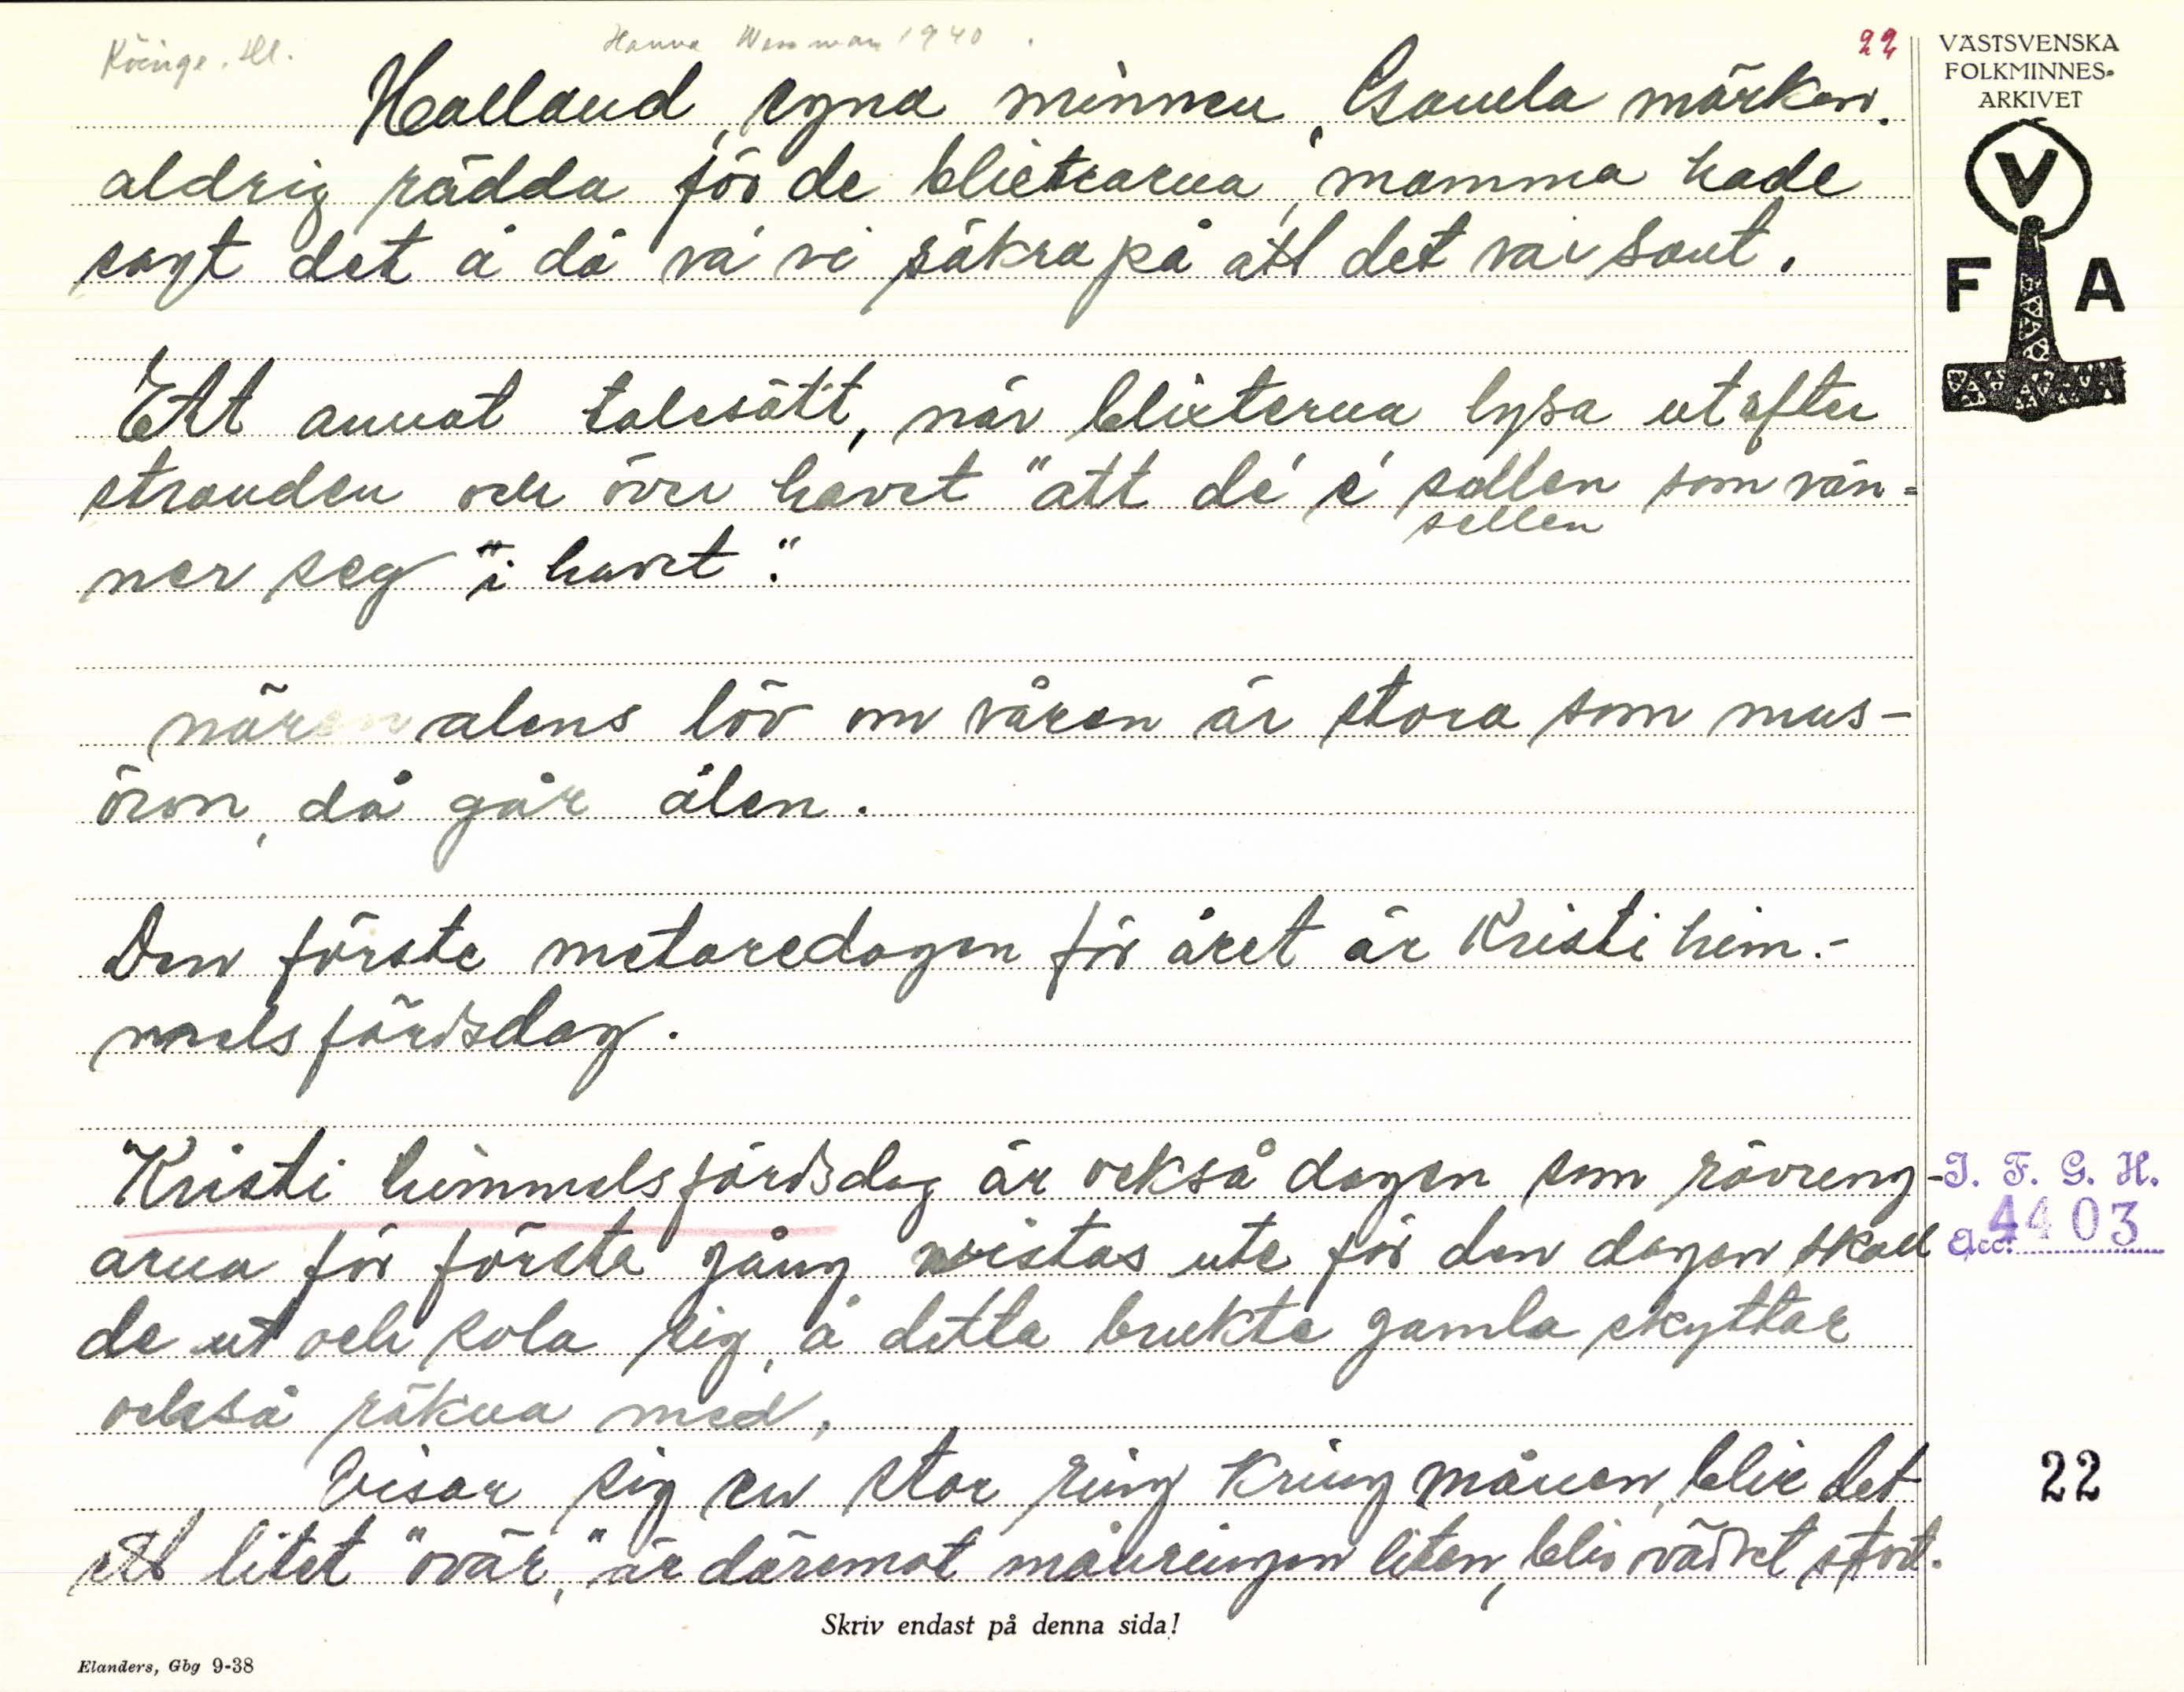 Köinge. Hl. Hanna Wessman 1940. 22
Halland, egna minnen, Gamla märken.
aldrig rädda för de blixtrarna, mamma hade
sagt det å då va' vi säkra på att det var sant.
Ett annat talesätt, när blixterna lysa utefter
stranden och över havet "att de' e' sallen som vän=
sellen
ner seg "i havet".
när alens löv om våren är stora som mus-
öron, då går ålen.
Den förste metaredagen för året är Kristi him.-
melsfärdsdag.
Kristi himmelsfärdsdag är också dagen som rävung-
arna för första gång vistas ute för den dagen skall
de ut och sola sig, å detta brukte gamla skyttar
också räkna med.
Visar sig en stor ring kring månen, blir det
ett litet "ovär", är däremot månringen liten, blir ovädret stort.
VÄSTSVENSKA
FOLKMINNES-
ARKIVET
V
F A
I. F. G. H.
Acc. 4403
22
Skriv endast på denna sida!
Elanders, Gbg 9-38